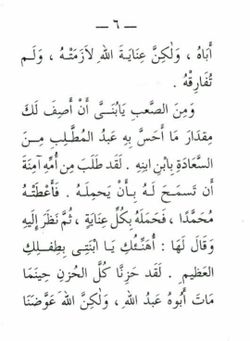 — ٦ —
أَبَاهُ ، وَلٰكِنَّ عِنَايَةَ اللهِ لَازَمَتْهُ ، وَلَمْ
تُفَارِقْهُ .
وَمِنَ الصَّعبِ يَابُنَىَّ أَنْ أَصِفَ لَكَ
مِقدَارَ مَا أَحَسَّ بِهِ عَبدُ المُطَّلِبِ مِنَ
السَّعَادَةِ بِابْنِ ابنِهِ . لَقد طَلَبَ مِن أُمِّهِ آمِنَةَ
أَن تَسمَحَ لَهُ بِأَنْ يَحمِلَهُ . فَأَعْطَتْهُ
مُحَمَّدًا ، فَحَمَلَهُ بِكُلِّ عِنَايَةٍ ، ثُمَّ نَظَرَ إِلَيهِ
وَقَالَ لَهَا : أُهَنِّئُكِ يَا ابْنَتِى بِطِفلِكِ
العَظِيمِ . لَقد حَزِنَّا كُلَّ الحُزنِ حِينَمَا
مَاتَ أَبُوهُ عَبدُ اللهِ ، وَلٰكِنَّ اللهَ عَوَّضَنَا